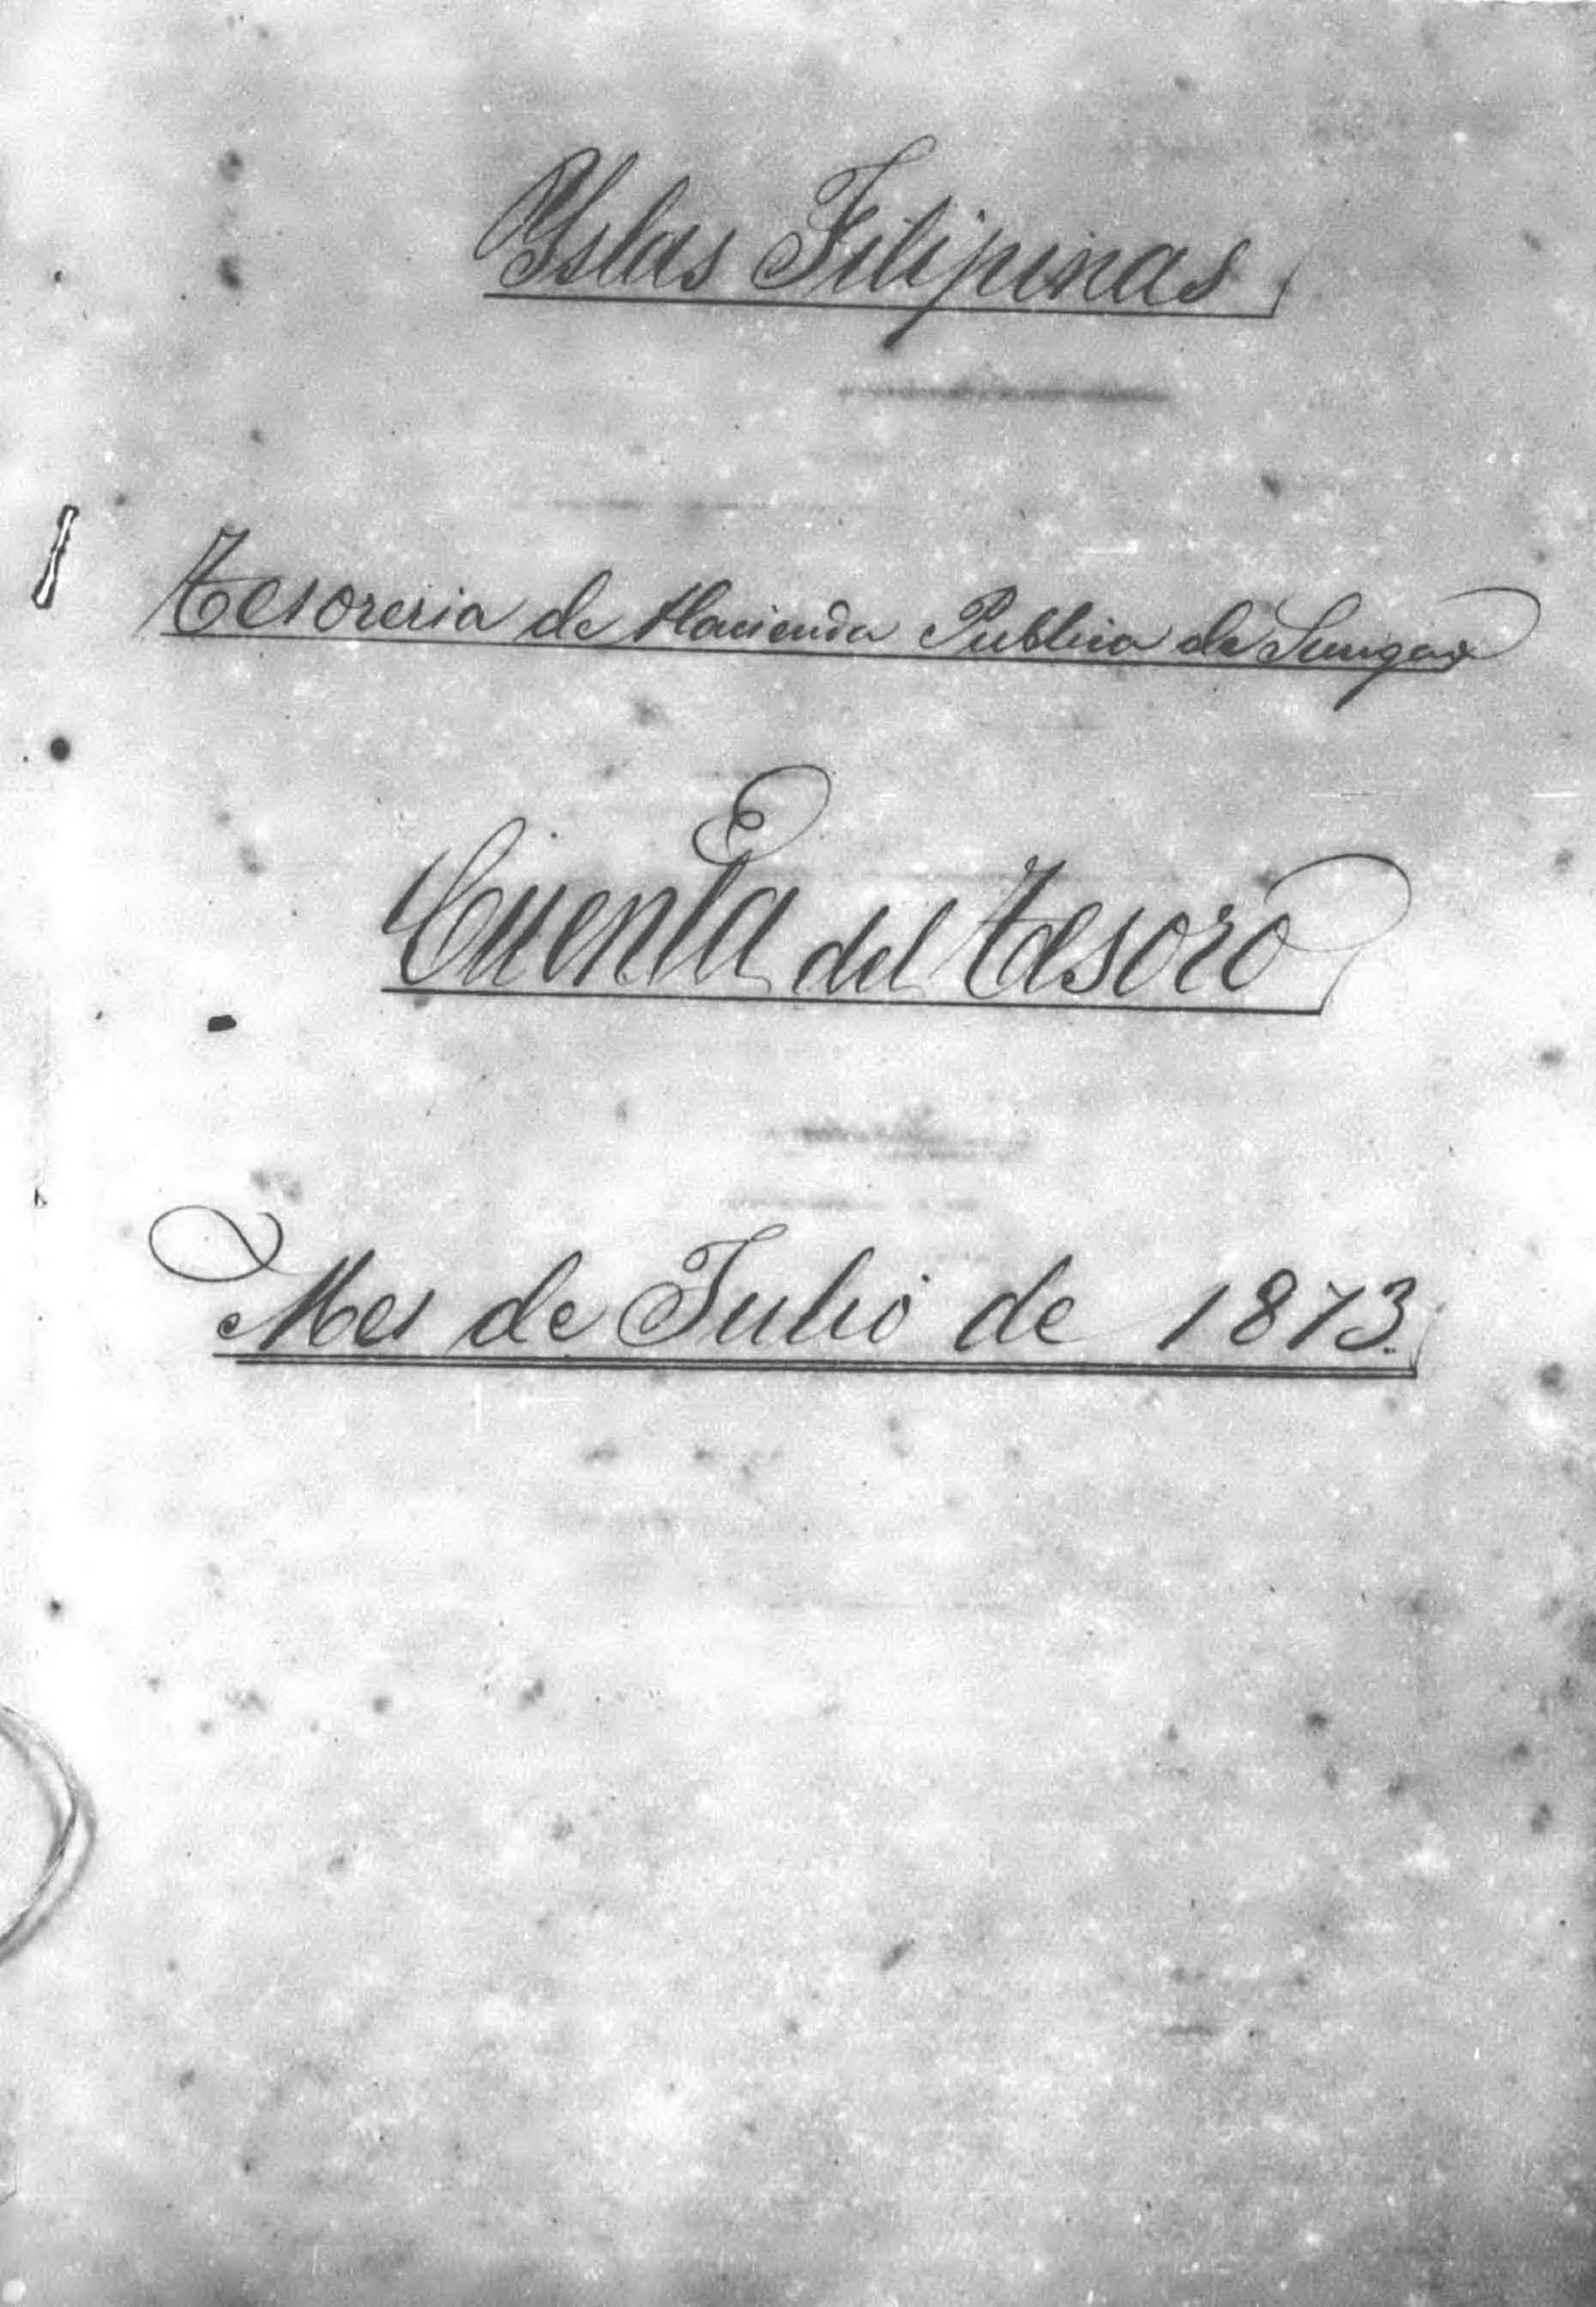 Yslas Filipinas
Tesoreria de Hacienda Publica de Surigao
Cuenta del Tesoro
Mes de Julio de 1873.